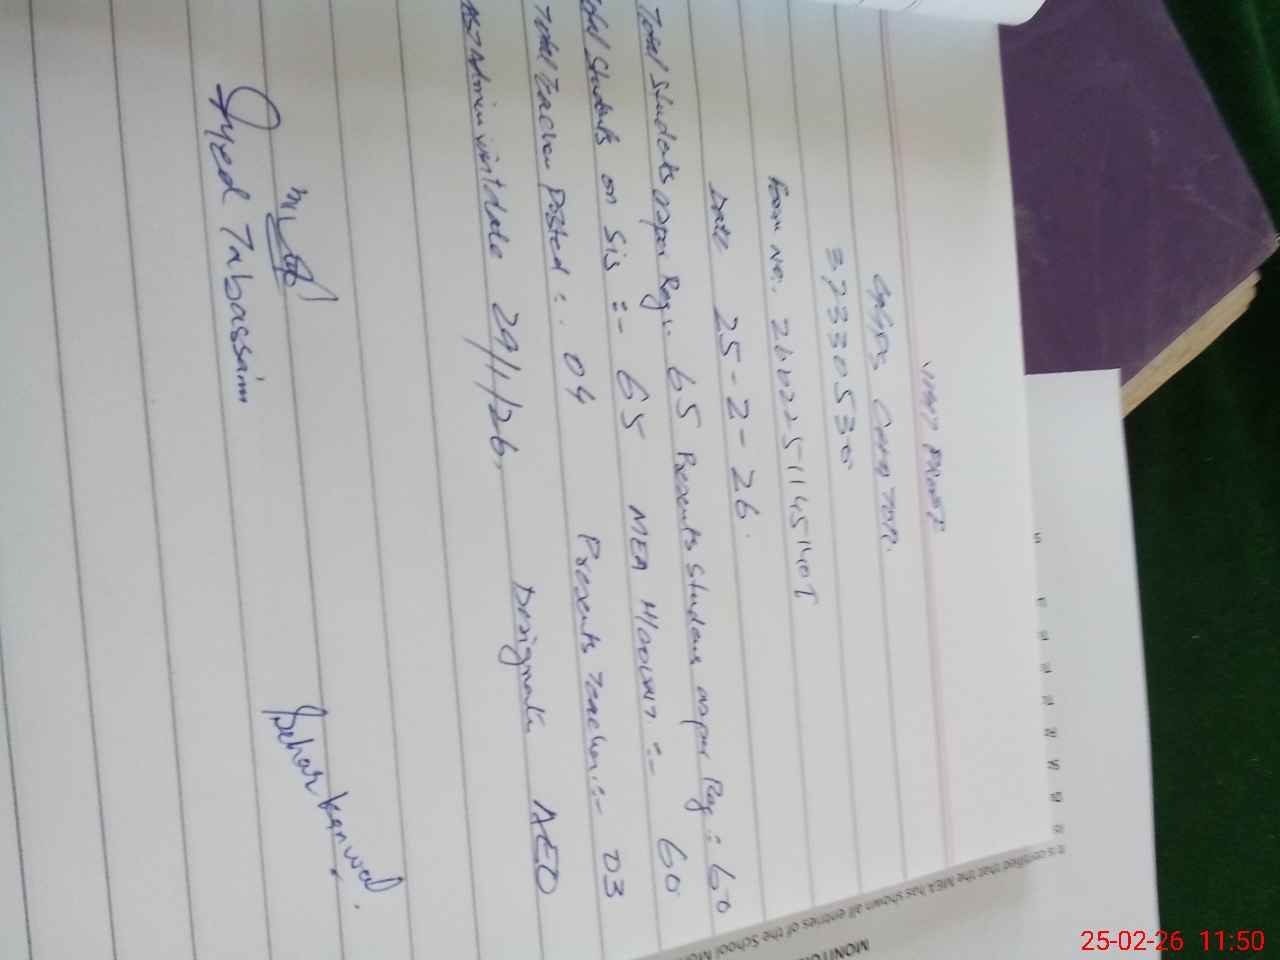 VISIT PROOF
37330530
Form No:. 260225114514OT
Date 25-2-26.
Total Students asper Reg:. 65 Presents Students asper Reg:- 60
Total Students on Sis :- 65 MEA H/count :- 60
Total Teacher Posted :. 04 Presents Teacher:- 03
Last Admin visit date 29/1/26, Designation AEO
Syed Tabassam
Sehar kanwal.
It is certified that the MEA has shown all entries of the School
25-02-26 11:50